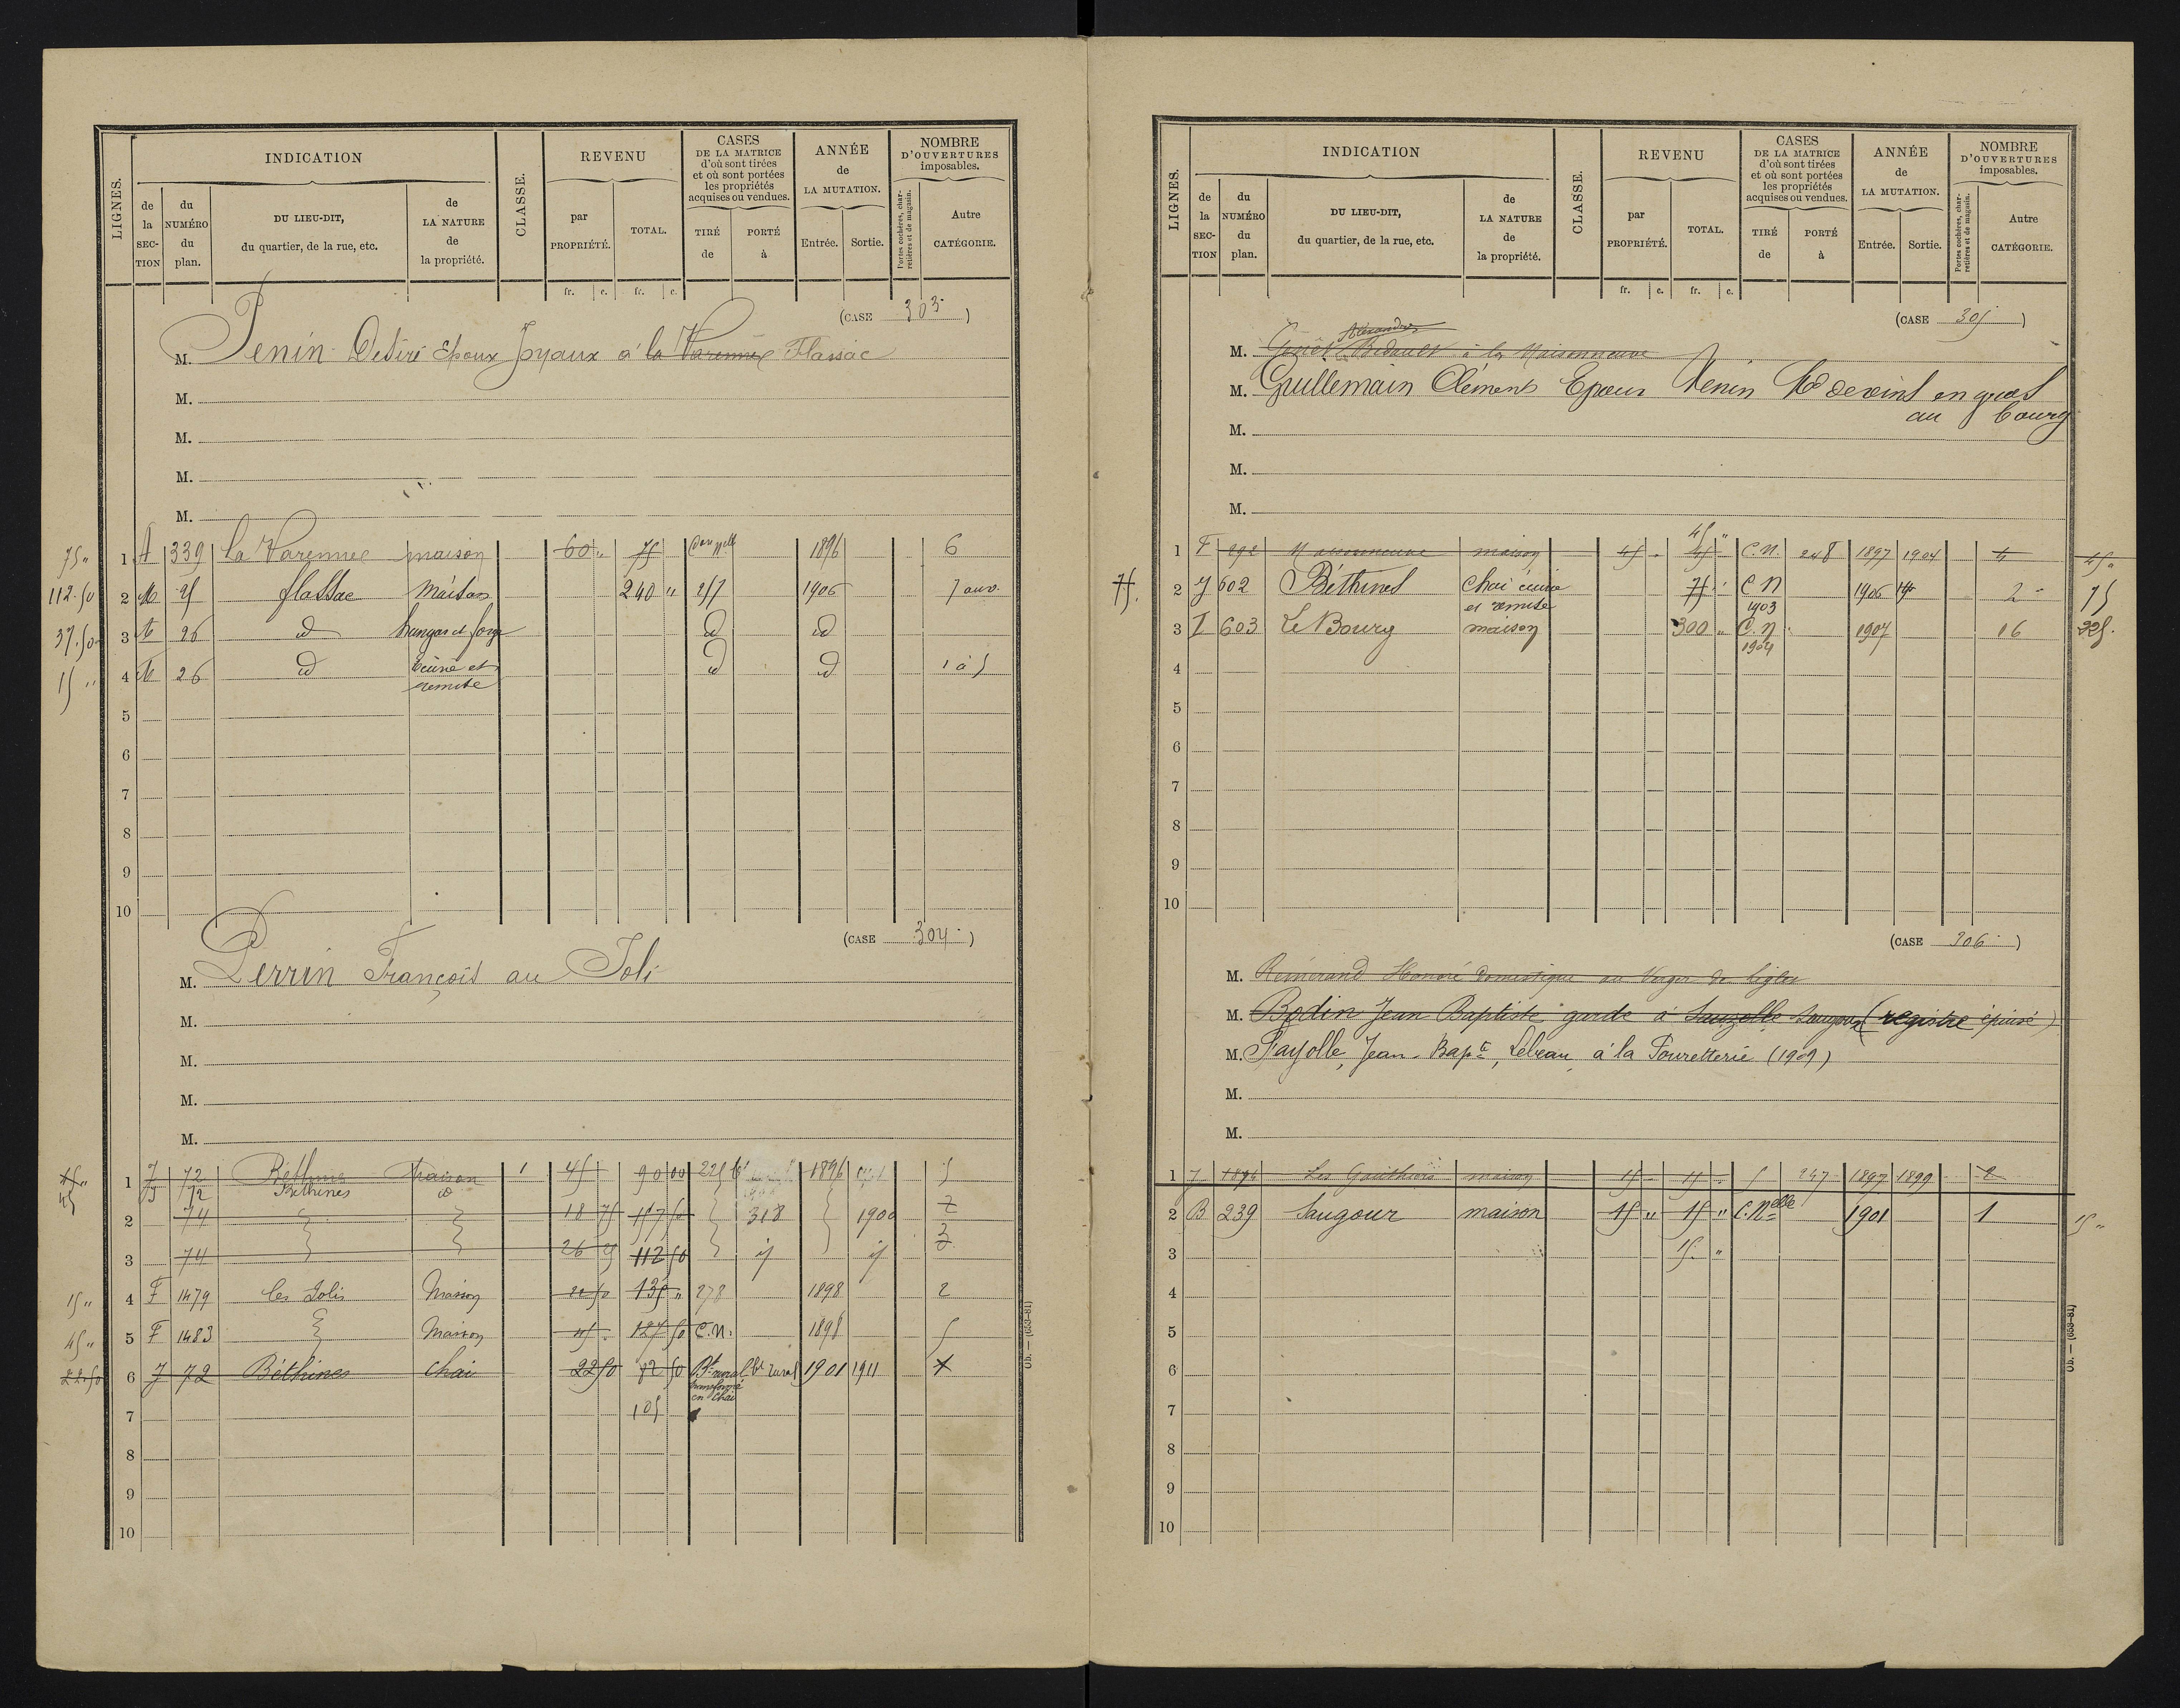 LIGNES.
INDICATION
de la SECTION
du NUMÉRO du plan.
DU LIEU-DIT, du quartier, de la rue, etc.
de LA NATURE de la propriété.
CLASSE.
REVENU
par PROPRIÉTÉ.
TOTAL.
CASES DE LA MATRICE d'où sont tirées et où sont portées les propriétés acquises ou vendues.
TIRÉ de
PORTÉ à
ANNÉE de LA MUTATION.
Entrée. Sortie.
NOMBRE D'OUVERTURES imposables.
Portes cochères, charretières et de magasin.
Autre CATÉGORIE.
fr. c. fr. c.
(CASE 303)
M. Penin Désiré Epoux Joyaux à la Varenne Flassac
M.
M.
M.
M.
75 " 1 A 339 La Varenne maison 60 " 75 1896 6
112.50 2 M 25 flassac Maison 240 " 257 1906 7 ouv.
37.50 3 M 26 id hangar et forge id id
15 " 4 M 26 id Ecurie et remise id id 1 à 5
5
6
7
8
9
10
(CASE 304)
M. Perrin François au Joli
M.
M.
M.
M.
45 1 J 72 Béthines Maison 1 45 90 00 225 1896 5
45 J 72 Béthines id
2 74 18 75 117 50 318 1900 2
3 74 26 25 112 50 3
15 " 4 F 1479 les Jolis Maison 22 50 135 " 278 1898 2
45 " 5 F 1483 Maison 45 127 50 C.N. 1898 5
22.50 6 J 72 Béthines Chai 22 50 72 50 Bt rural transformé en Chai Bt rural 1901 1911
7 105
8
9
10
Ub. — (653-81)
LIGNES.
INDICATION
de la SECTION
du NUMÉRO du plan.
DU LIEU-DIT, du quartier, de la rue, etc.
de LA NATURE de la propriété.
CLASSE.
REVENU
par PROPRIÉTÉ.
TOTAL.
CASES DE LA MATRICE d'où sont tirées et où sont portées les propriétés acquises ou vendues.
TIRÉ de
PORTÉ à
ANNÉE de LA MUTATION.
Entrée. Sortie.
NOMBRE D'OUVERTURES imposables.
Portes cochères, charretières et de magasin.
Autre CATÉGORIE.
fr. c. fr. c.
(CASE 305)
Alexandre
M. Bidault à la Maisonneuve
M. Guillemain Clément Epoux Penin Md de vins en gros
au bourg
M.
M.
M.
45 "
1 F 292 Maisonneuve maison 45 45 C.N. 248 1897 1904 4 45 "
75. 2 J 602 Béthines Chai écurie et remise 75 C N 1903 1906 2 75
3 I 603 Le Bourg maison 300 " C.N. 1904 1907 16 225.
4
5
6
7
8
9
10
(CASE 306)
M. Rémérand Honoré Domestique au Verger de liglet
M. Bodin Jean Baptiste garde à Sauzelle Saugour (registre épuisé)
M. Fayolle, Jean-Bapte, Lebeau, à la Touretterie (1909)
M.
M.
1 J 1894 Les Gauthiers maison 15 15 5 247 1897 1899 2
2 B 239 Saugour maison 15 " 15 " C.Nelle 1901 1 15 "
3 15. "
4
5
6
7
8
9
10
Ub. — (653-81)